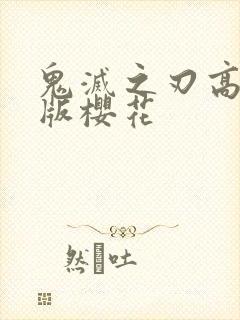 鬼滅之刃高
版櫻花
然 吐